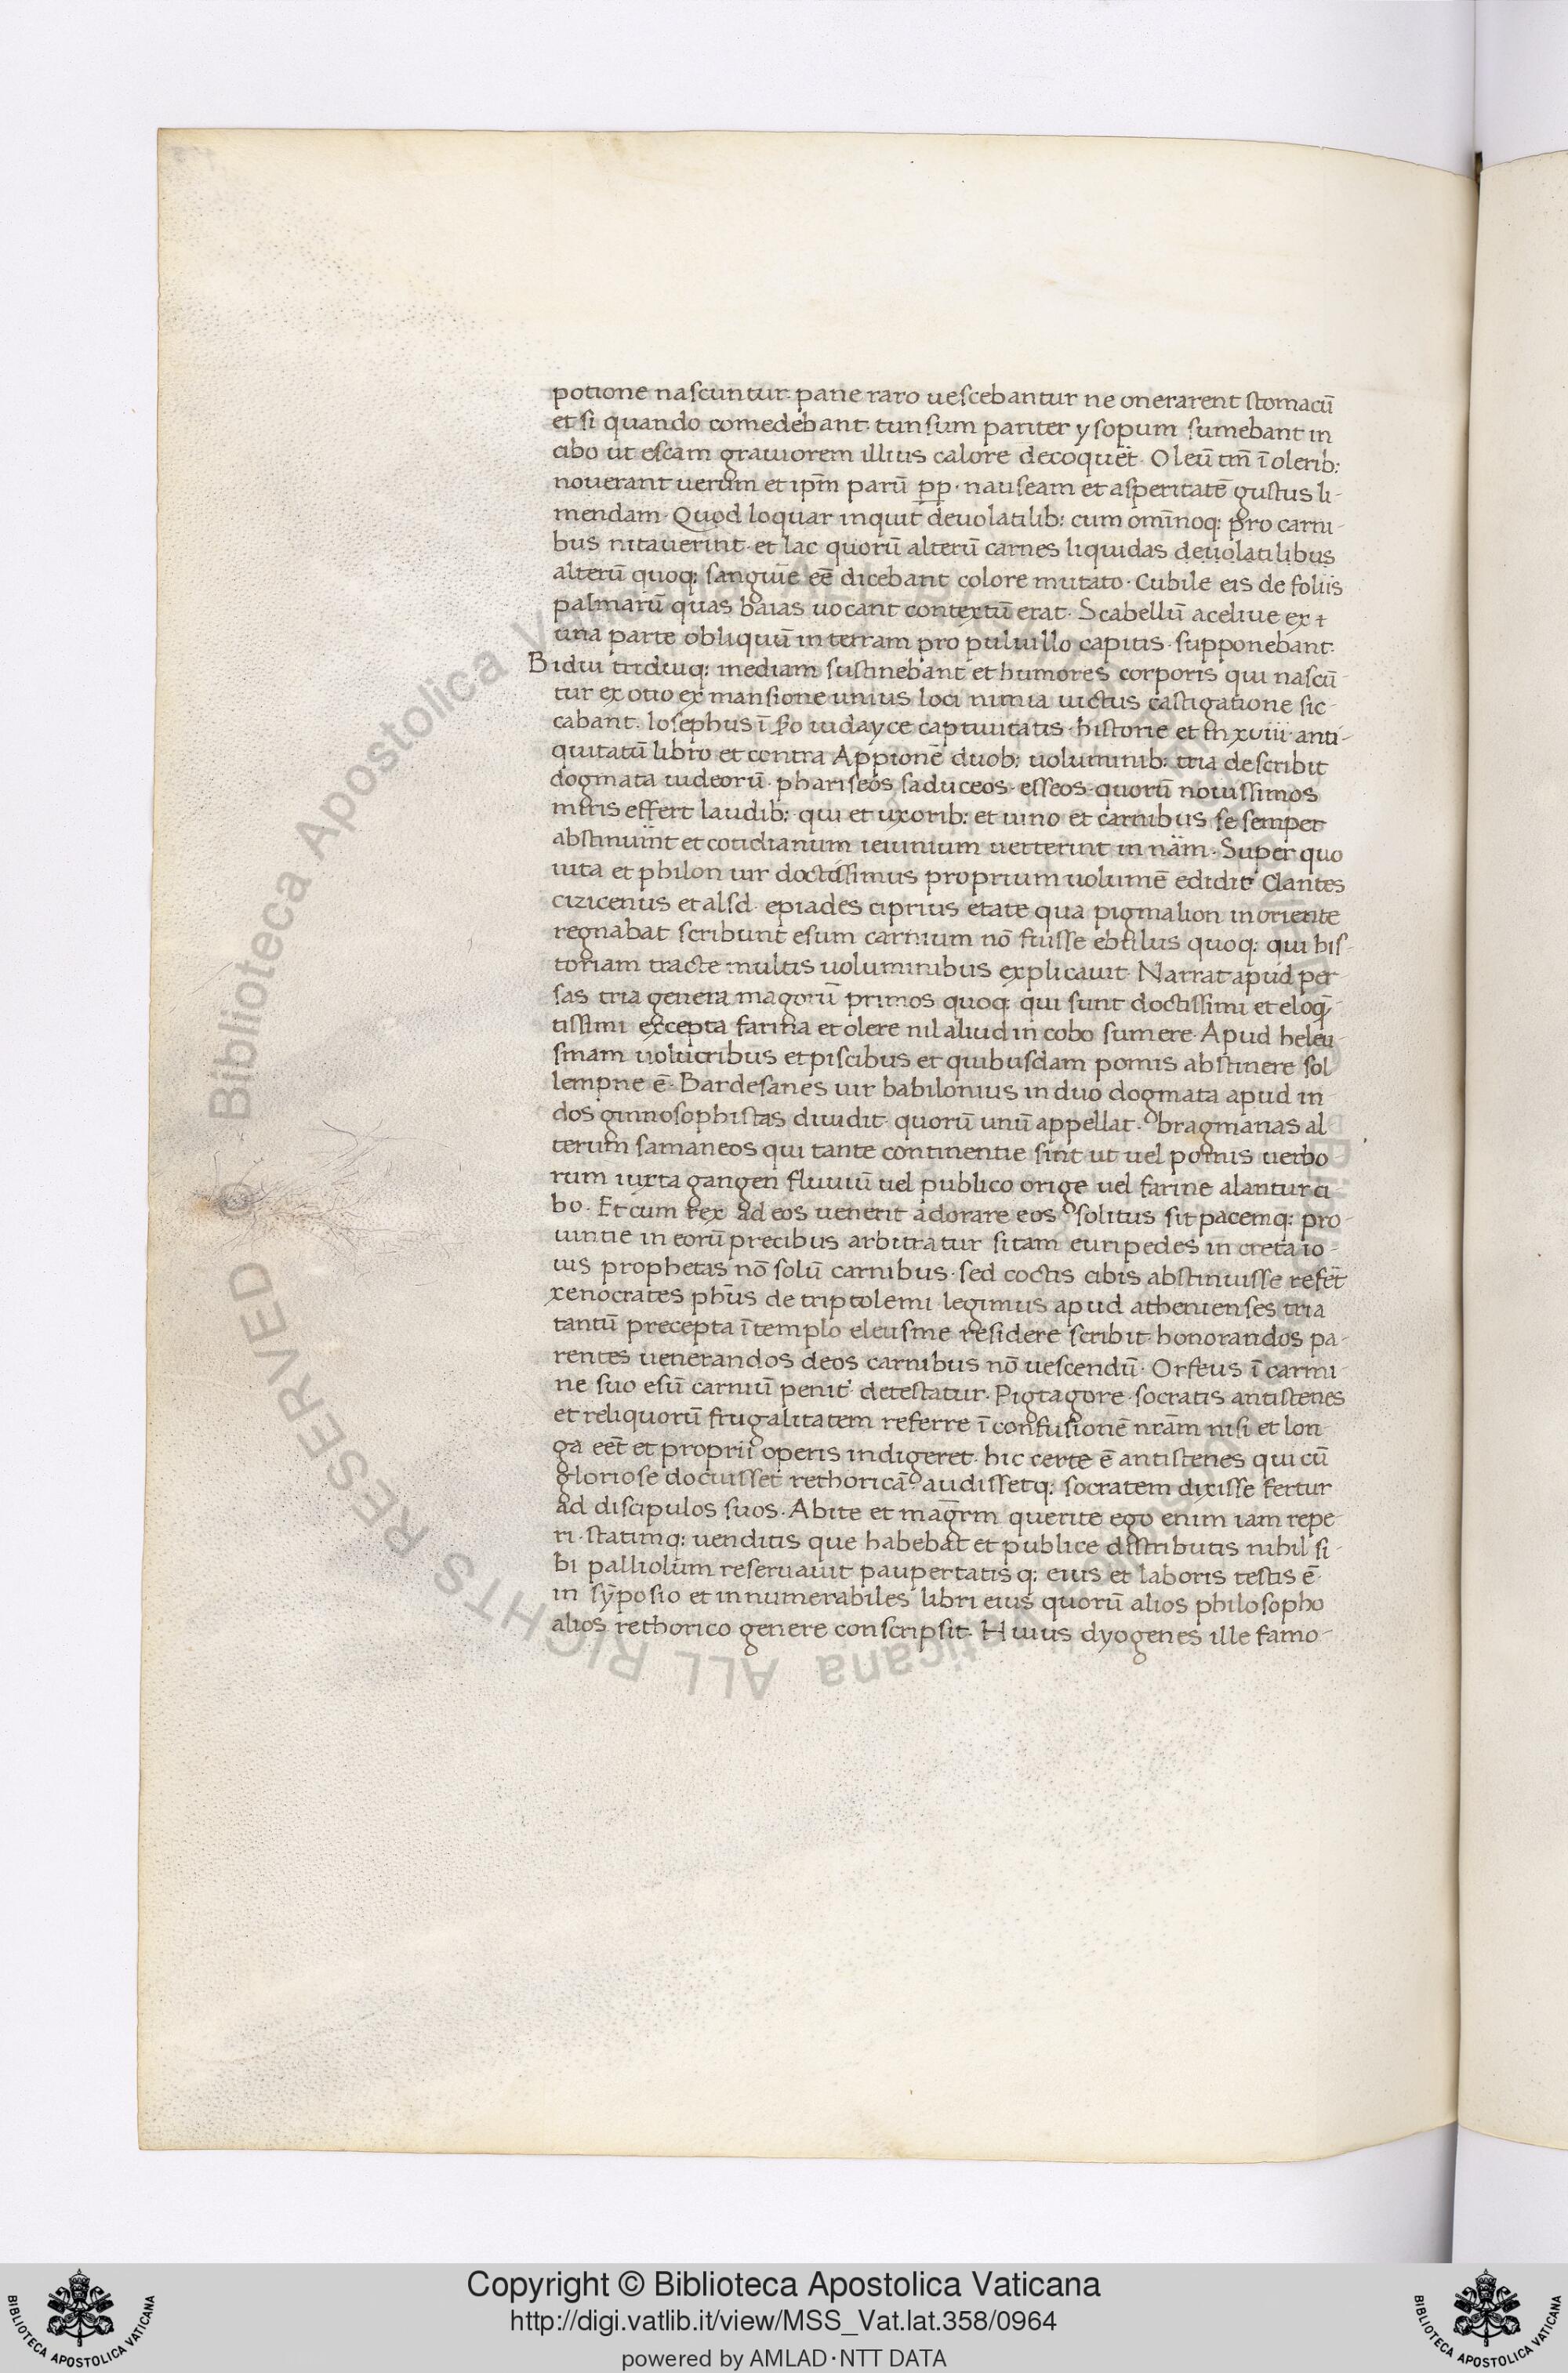 potione nascuntur. pane raro uescebantur ne onerarent stomacū
et si quando comedebant. tunsum pariter ysopum sumebant in
cibo ut escam grauiorem illius calore decoquēt. Oleū tm̄ ī olerib:
nouerant uerum et ip̄m parū pp̄. nauseam et asperitatē gustus li-
mendam. Quod loquar inquit deuolatilib: cum omīnoq: pro carni-
bus nitauerint. et lac quorū alterū carnes liquidas deuolatilibus
alterū quoq: sanguīe eē dicebant colore mutato. Cubile eis de foliis
palmarū quas baias uocant contextū erat. Scabellū aceliue ex
una parte obliquū in terram pro puluillo capitis supponebant.
Bidui triduiq: mediam sustinebant et humores corporis qui nascū-
tur ex otio ex mansione unius loci nimia uictus castigatione sic-
cabant. Iosephus ī iudayce captiuitatis historie et in xviii anti-
quitatū libro et contra Appionē duob: uoluminib: tria describit
dogmata iudeorū. phariseos saduceos. esseos. quorū nouissimos
miris effert laudib: qui et uxorib: et uino et carnibus se semper
abstinuīnt et cotidianum ieiunium uerterint in nām. Super quo
uita et philon uir doctissimus proprium uolumē edidit Clantes
cizicenus et alsd. epiades ciprius etate qua pigmalion in oriente
regnabat scribunt esum carnium nō fuisse ebulus quoq: qui his-
toriam tracte multis uoluminibus explicauit. Narrat apud per-
sas tria genera magorū primos quoq: qui sunt doctissimi et eloq̄-
tissimi excepta farina et olere nil aliud in cobo sumere. Apud heleu-
sinam uolucribus et piscibus et quibusdam pomis abstinere sol
lempne ē. Bardesanes uir babilonius in duo dogmata apud in-
dos ginnosophistas diuidit quorū unū appellat. bragmanas al
terum samaneos qui tante continentie sint ut uel pomis uerbo
rum iuxta gangen fluuiū uel publico orige uel farine alantur ci
bo. Et cum rex ad eos uenerit adorare eos solitus sit pacemq: pro-
uintie in eorū precibus arbitratur sitam euripedes in creta io-
uis prophetas nō solū carnibus. sed coctis cibis abstinuisse refēt
xenocrates ph̄us de triptolemi legimus apud athenienses tria
tantū precepta ī templo eleusine residere scribit honorandos pa-
rentes uenerandos deos carnibus nō uescendū. Orfeus ī carmi-
ne suo esū carniū penit' detestatur. Pigtagore. socratis antistenes
et reliquorū frugalitatem referre ī confusionē nrām nisi et lon-
ga eēt et proprii operis indigeret. hic certe ē antistenes qui cū
gloriose docuisset rethoricā audissetq: socratem dixisse fertur
ad discipulos suos. Abite et magr̄m querite ego enim iam repe-
ri. statimq: uenditis que habebat et publice distributis nihil si-
bi palliolum reseruauit paupertatis q: eius et laboris testis ē
in sȳposio et innumerabiles libri eius quorū alios philosopho
alios rethorico genere conscripsit. Huius dyogenes ille famo-
© Biblioteca Apostolica Vaticana ALL RIGHTS RESERVED
Copyright © Biblioteca Apostolica Vaticana
http://digi.vatlib.it/view/MSS_Vat.lat.358/0964
powered by AMLAD·NTT DATA
BIBLIOTECA APOSTOLICA VATICANA
BIBLIOTECA APOSTOLICA VATICANA